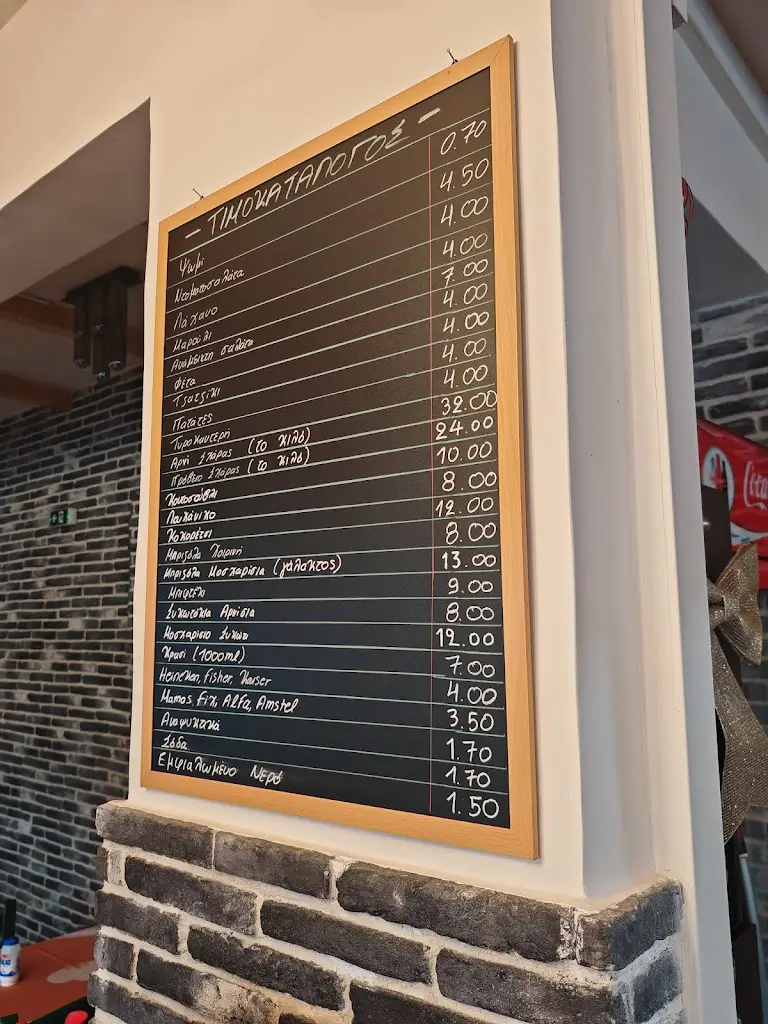 - ΤΙΜΟΚΑΤΑΛΟΓΟΣ -
Ψωμί 0.70
Ντοματοσαλάτα 4.50
Λάχανο 4.00
Μαρούλι 4.00
Ανάμεικτη σαλάτα 7.00
Φέτα 4.00
Τσατζίκι 4.00
Πατάτες 4.00
Τυροκαυτερή 4.00
Αρνί Σχάρας (το κιλό) 32.00
Πρόβειο Σχάρας (το κιλό) 24.00
Κοντοσούβλι 10.00
Λουκάνικο 8.00
Κοκορέτσι 12.00
Μπριζόλα Χοιρινή 8.00
Μπριζόλα Μοσχαρίσια (γάλακτος) 13.00
Μπιφτέκι 9.00
Συκωτάκια Αρνίσια 8.00
Μοσχαρίσιο Συκώτι 12.00
Κρασί (1000ml) 7.00
Heineken, Fisher, Kaiser 4.00
Mamos, Fix, Alfa, Amstel 3.50
Αναψυκτικά 1.70
Σόδα 1.70
Εμφιαλωμένο Νερό 1.50